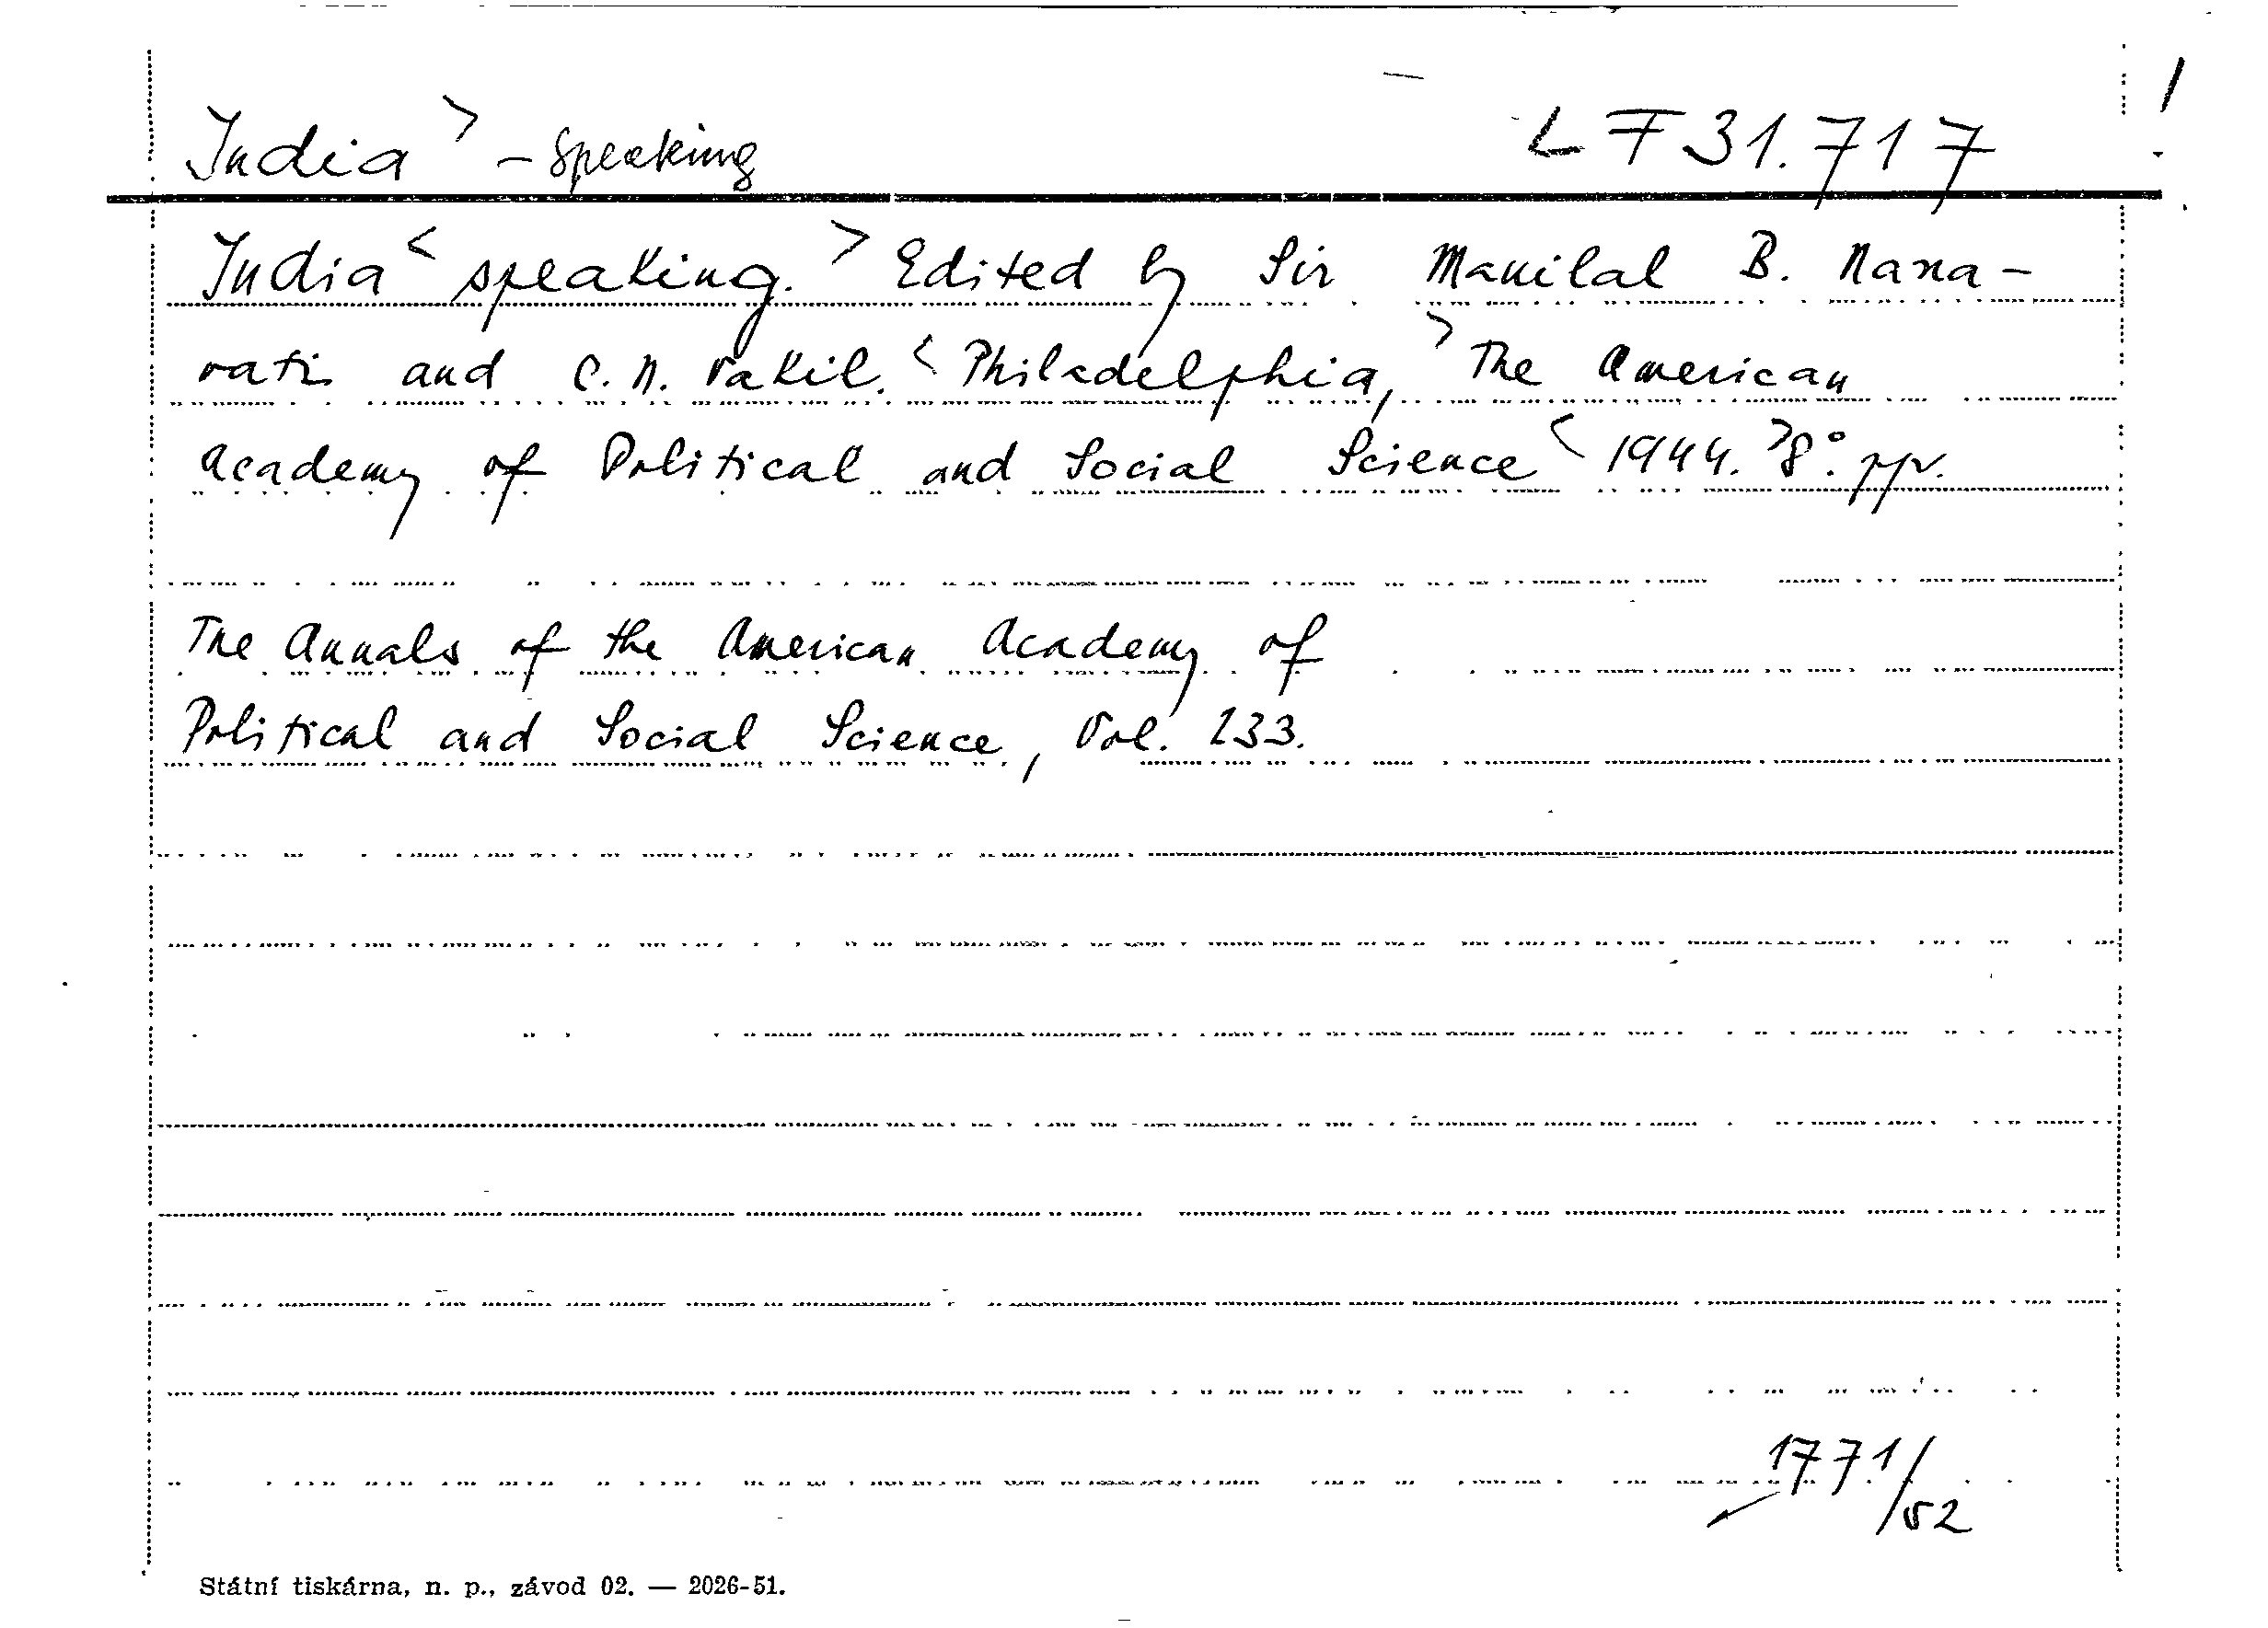 India > - Speaking LF 31.717 /
India < speaking. > Edited by Sir Manilal B. Nana-
vati and C. N. Vakil. < Philadelphia, > The American
Academy of Political and Social Science < 1944. > 8°. ppv.
The Annals of the American Academy of
Political and Social Science, Vol. 233.
1771/52
Státní tiskárna, n. p., závod 02. — 2026-51.